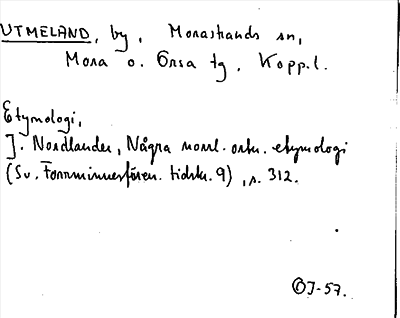 UTMELAND, by, Morastrands sn,
Mora o. Orsa tg. Kopp.l.
Etymologi,
J. Nordlander, Några norrl. ortn. etymologi
(Sv. Fornminnesfören. tidskr. 9), s. 312.
OJ-57.